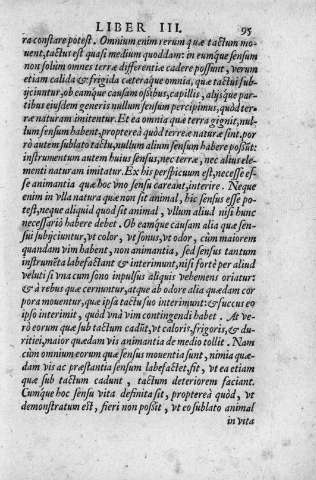 LIBER III. 95
ra constare potest. Omnium enim rerum quæ tactum mo-
uent, tactus est quasi medium quoddam: in eumque sensum
non solùm omnes terræ differentiæ cadere possunt, verum
etiam calida & frigida cæteraque omnia, quæ tactui sub-
ijciuntur, ob eamque causam ossibus, capillis, alijsque par-
tibus eiusdem generis nullum sensum percipimus, quòd ter-
ræ naturam imitentur. Et ea omnia quæ terra gignit, nul-
lum sensum habent, proptereà quòd terreæ naturæ sint. por
rò autem sublato tactu, nullum alium sensum habere possūt:
instrumentum autem huius sensus, nec terræ, nec alius ele-
menti naturam imitatur. Ex his perspicuum est, necesse es-
se animantia quæ hoc vno sensu careant, interire. Neque
enim in vlla natura quæ non sit animal, hic sensus esse po-
test, neque aliquid quod sit animal, vllum aliud nisi hunc
necessariò habere debet. Ob eamque causam alia quæ sen-
sui subijciuntur, vt color, vt sonus, vt odor, cùm maiorem
quandam vim habent, non animantia, sed sensus tantum
instrumēta labefactant & interimunt, nisi fortè per aliud
veluti si vna cum sono inpulsus aliquis vehemens oriatur:
& à rebus quæ cernuntur, atque ab odore alia quædam cor
pora mouentur, quæ ipsa tactu suo interimunt: & succus eo
ipso interimit, quòd vnà vim contingendi habet. At ve-
rò eorum quæ sub tactum cadūt, vt caloris, frigoris, & du-
ritiei, maior quædam vis animantia de medio tollit. Nam
cùm omnium eorum quæ sensus mouentia sunt, nimia quæ-
dam vis ac præstantia sensum labefactet, fit, vt ea etiam
quæ sub tactum cadunt, tactum deteriorem faciant.
Cumque hoc sensu vita definita sit, proptereà quòd, vt
demonstratum est, fieri non possit, vt eo sublato animal
in vita